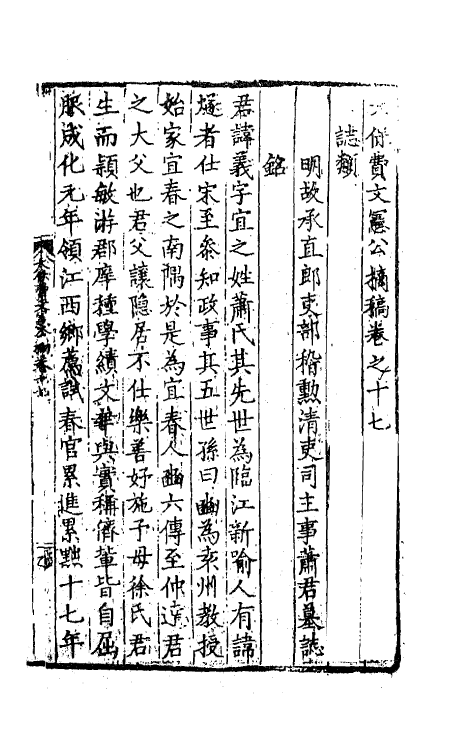 太保費文憲公摘稿卷之十七
誌類
明故承直郎吏部稽勲清吏司主事蕭君墓誌
銘
君諱義字宜之姓蕭氏其先世為臨江新喻人有諱
燧者仕宋至叅知政事其五世孫曰幽為袁州教授
始家宜春之南隅於是為宜春人幽六傳至仲達君
之大父也君父讓隐居不仕樂善好施予母徐氏君
生而穎敏游郡庠種學績文華與實稱儕輩皆自屈
服成化元年領江西鄉薦試春官累進累黜十七年